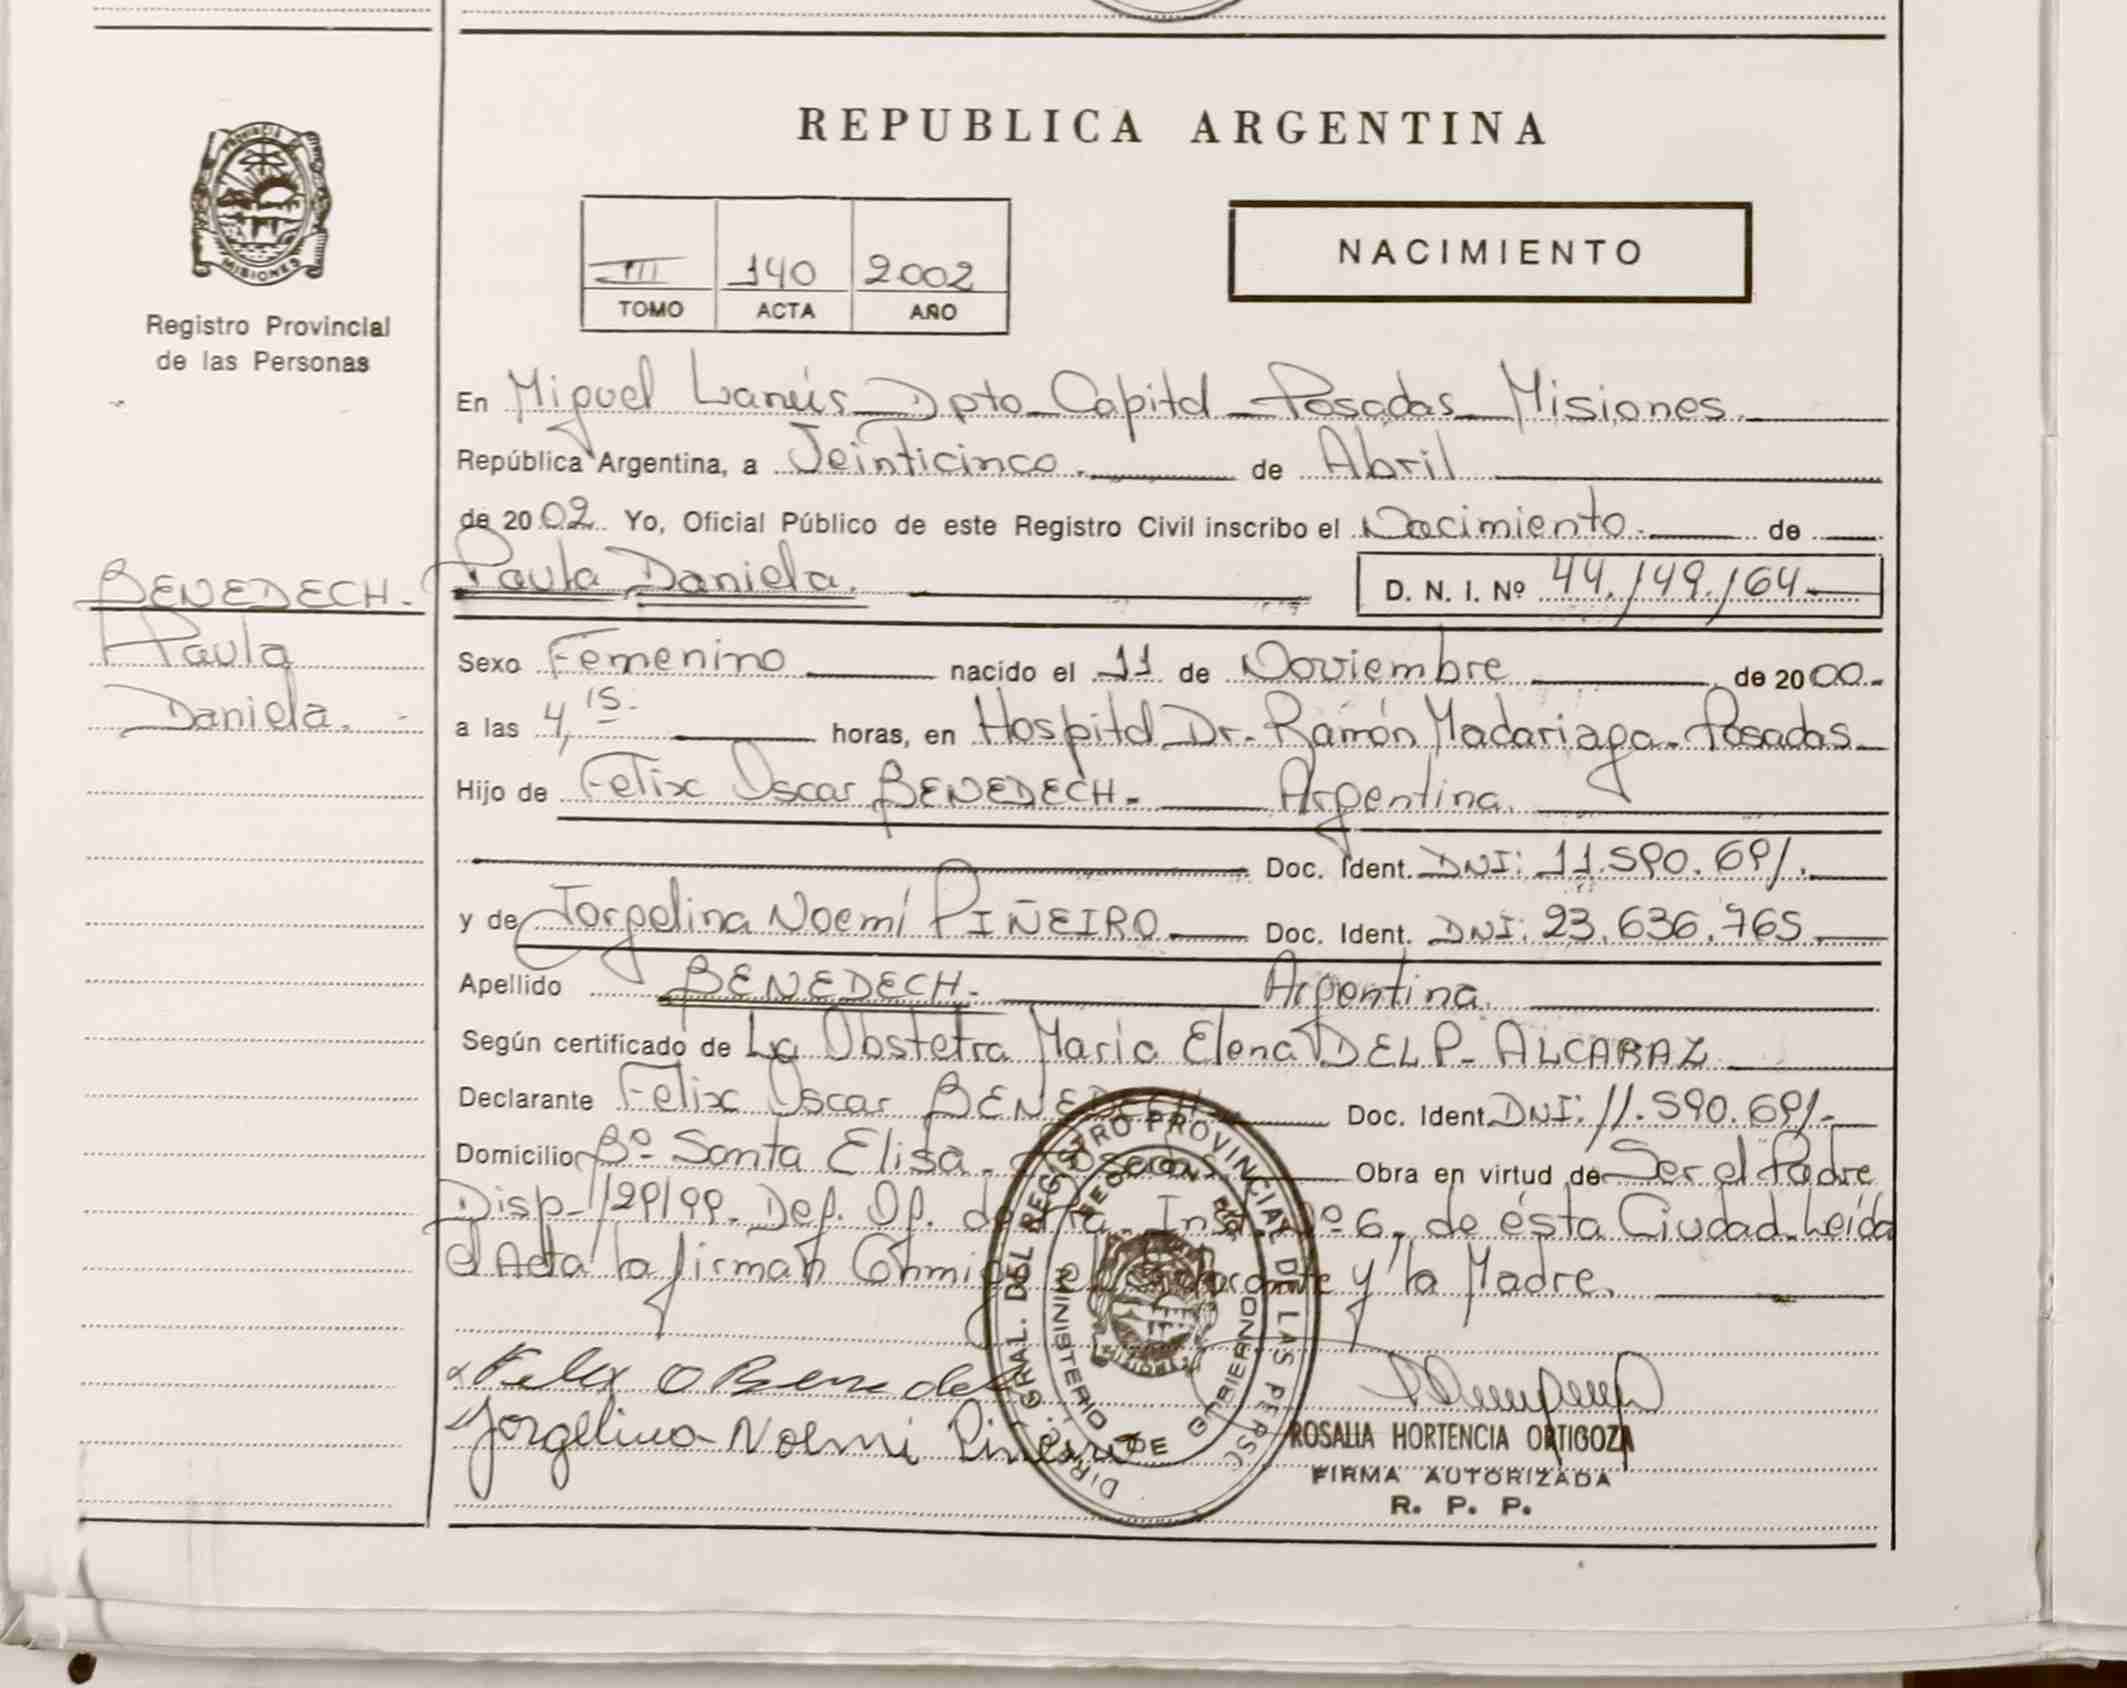 REPUBLICA ARGENTINA
PROVINCIA
MISIONES
Registro Provincial
de las Personas
III 140 2002
TOMO ACTA AÑO
NACIMIENTO
En Miguel Lanús Dpto Capital Posadas Misiones.
República Argentina, a Veinticinco. de Abril
de 2002 Yo, Oficial Público de este Registro Civil inscribo el Nacimiento. de
BENEDECH.
Paula
Daniela.
Paula Daniela. D. N. I. Nº 44.149.164
Sexo Femenino nacido el 11 de Noviembre de 2000.
a las 4,15. horas, en Hospital Dr. Ramón Madariaga. Posadas
Hijo de Felix Oscar BENEDECH. Argentina.
Doc. Ident. DNI: 11.590.691.
y de Jorgelina Noemí PIÑEIRO Doc. Ident. DNI: 23.636.765.
Apellido BENEDECH. Argentina.
Según certificado de La Obstetra Maria Elena DEL P. ALCARAZ
Declarante Felix Oscar BENEDECH. Doc. Ident. DNI: 11.590.691.
Domicilio Bº Santa Elisa. Posadas. Obra en virtud de Ser el Padre
Disp. 129/99. Def. Of. de Inst. Nº 6. de ésta Ciudad. Leída
el Acta la firman Conmigo el Declarante y la Madre.
Felix O Benedech
Jorgelina Noemi Piñeiro
DIREC. GRAL. DEL REGISTRO PROVINCIAL DE LAS PERSO
MINISTERIO DE GOBIERNO
MISIONES
ROSALIA HORTENCIA ORTIGOZA
FIRMA AUTORIZADA
R. P. P.